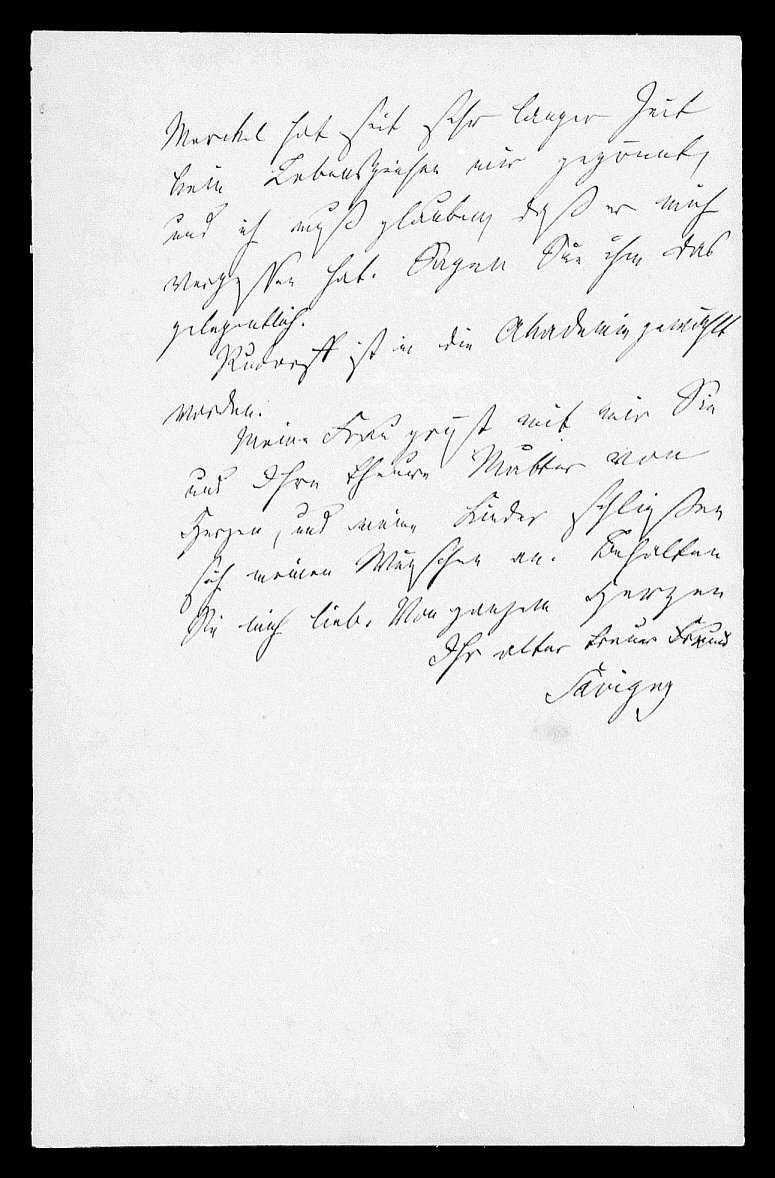 Merckel hat seit sehr langer Zeit
kein Lebenszeichen mir gegönnt,
und ich muß glauben, daß er mich
vergessen hat. Sagen Sie ihm das
gelegentlich.
Rudorff ist in die Akademie gewählt
worden.
Meine Frau grüßt mit mir Sie
und Ihre theure Mutter von
Herzen, und meine Kinder schließen
sich meinen Wünschen an. Behalten
Sie mich lieb. Von ganzem Herzen
Ihr alter treuer Freund
Savigny